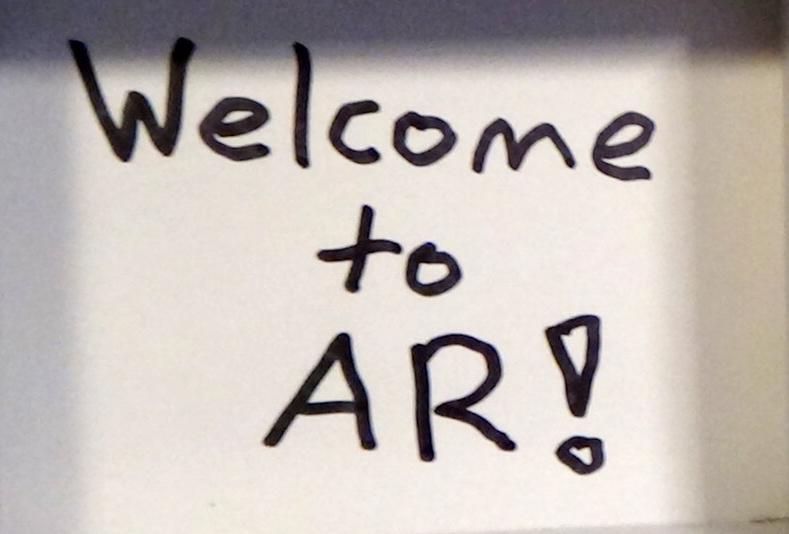 Welcome
to
AR!